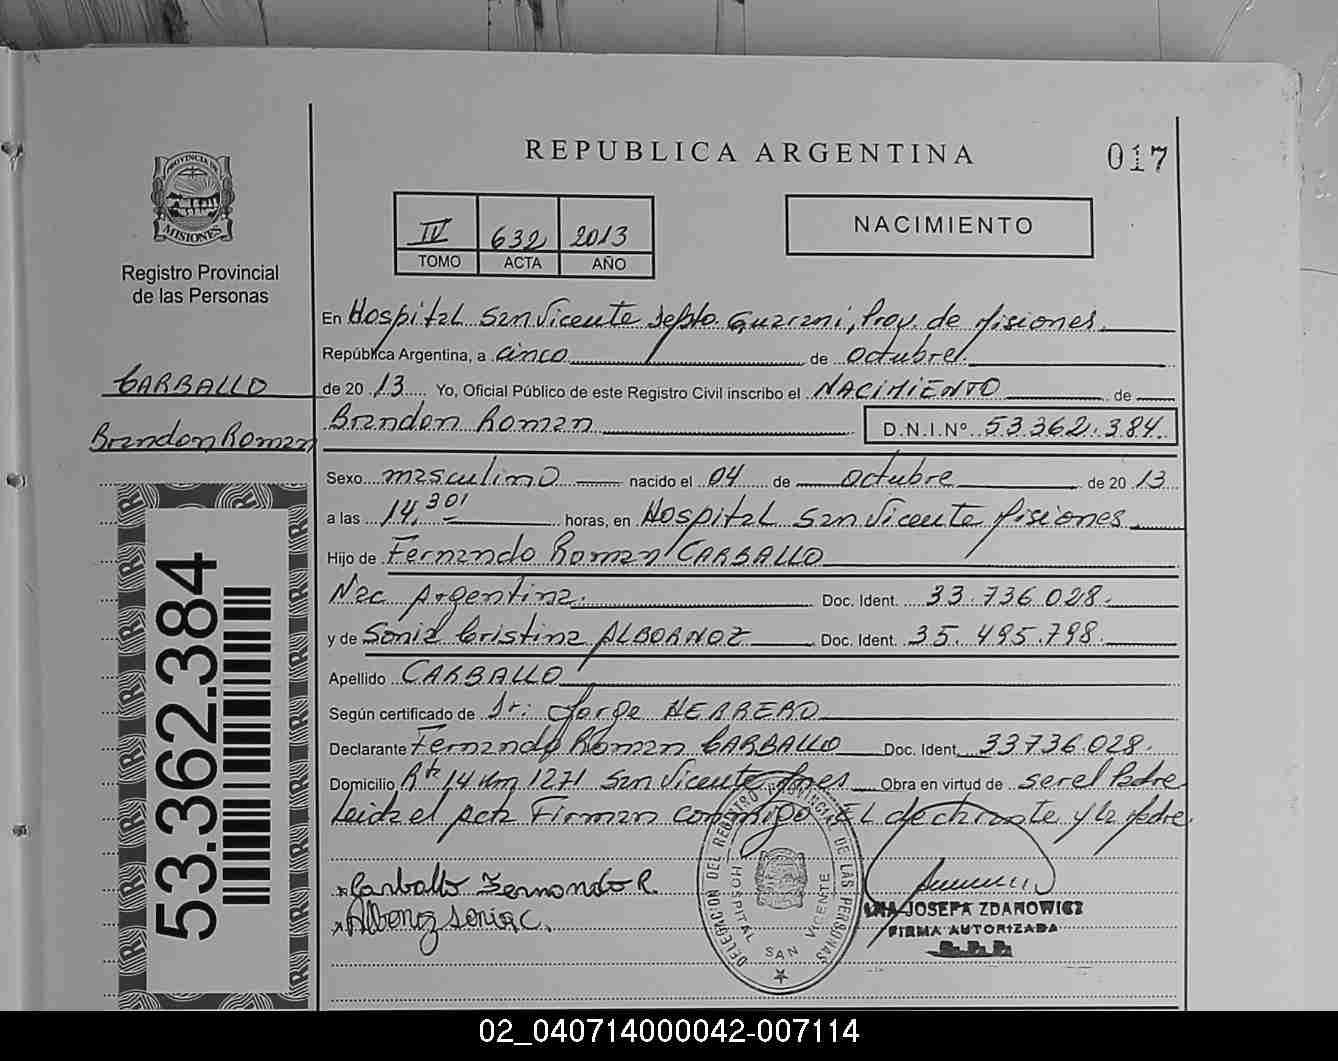 REPUBLICA ARGENTINA
017
PROVINCIA DE
MISIONES
Registro Provincial
de las Personas
IV 632 2013
TOMO ACTA AÑO
NACIMIENTO
CARBALLO
Brandon Roman
53.362.384
En Hospital San Vicente Depto. Guarani, Prov. de Misiones
República Argentina, a cinco de octubre
de 2013 Yo, Oficial Público de este Registro Civil inscribo el NACIMIENTO de
Brandon Roman D.N.I.Nº 53.362.384.
Sexo masculino nacido el 04 de octubre de 2013
a las 14,30' horas, en Hospital San Vicente Misiones
Hijo de Fernando Roman CARBALLO
Nac Argentina. Doc. Ident. 33.736.028.
y de Sonia Cristina ALBORNOZ Doc. Ident. 35.495.798.
Apellido CARBALLO
Según certificado de Dr: Jorge HERRERO
Declarante Fernando Roman CARBALLO Doc. Ident. 33736.028.
Domicilio Rta 14 Km 1271 San Vicente Mnes Obra en virtud de ser el Padre
Leida el Acta Firman conmigo El declarante y la Madre
Carballo Fernando R.
Albornoz Sonia C.
DELEGACION DEL REGISTRO PROVINCIAL DE LAS PERSONAS
HOSPITAL SAN VICENTE
JOSEFA ZDANOWICZ
FIRMA AUTORIZADA
02_040714000042-007114